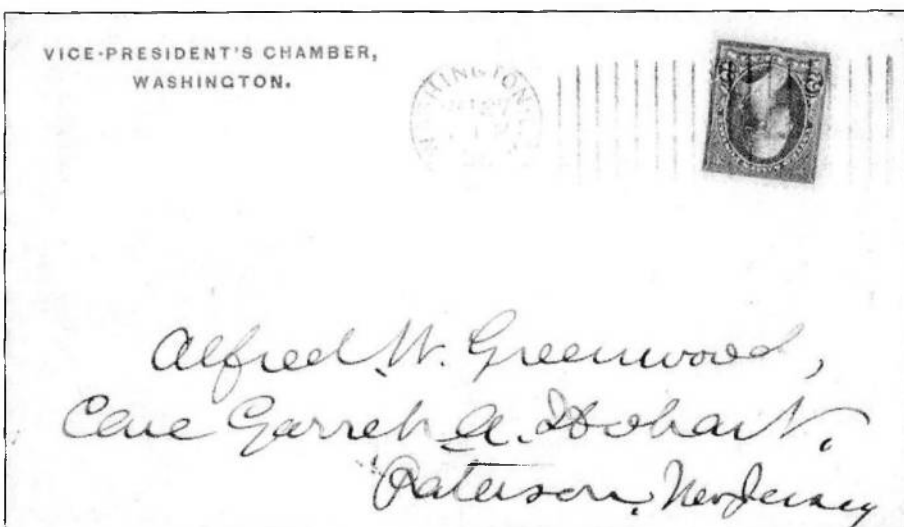 VICE-PRESIDENT'S CHAMBER,
WASHINGTON.
HINGTON
Alfred W. Greenwood,
Care Garret A. Hobart.
Paterson, New Jersey